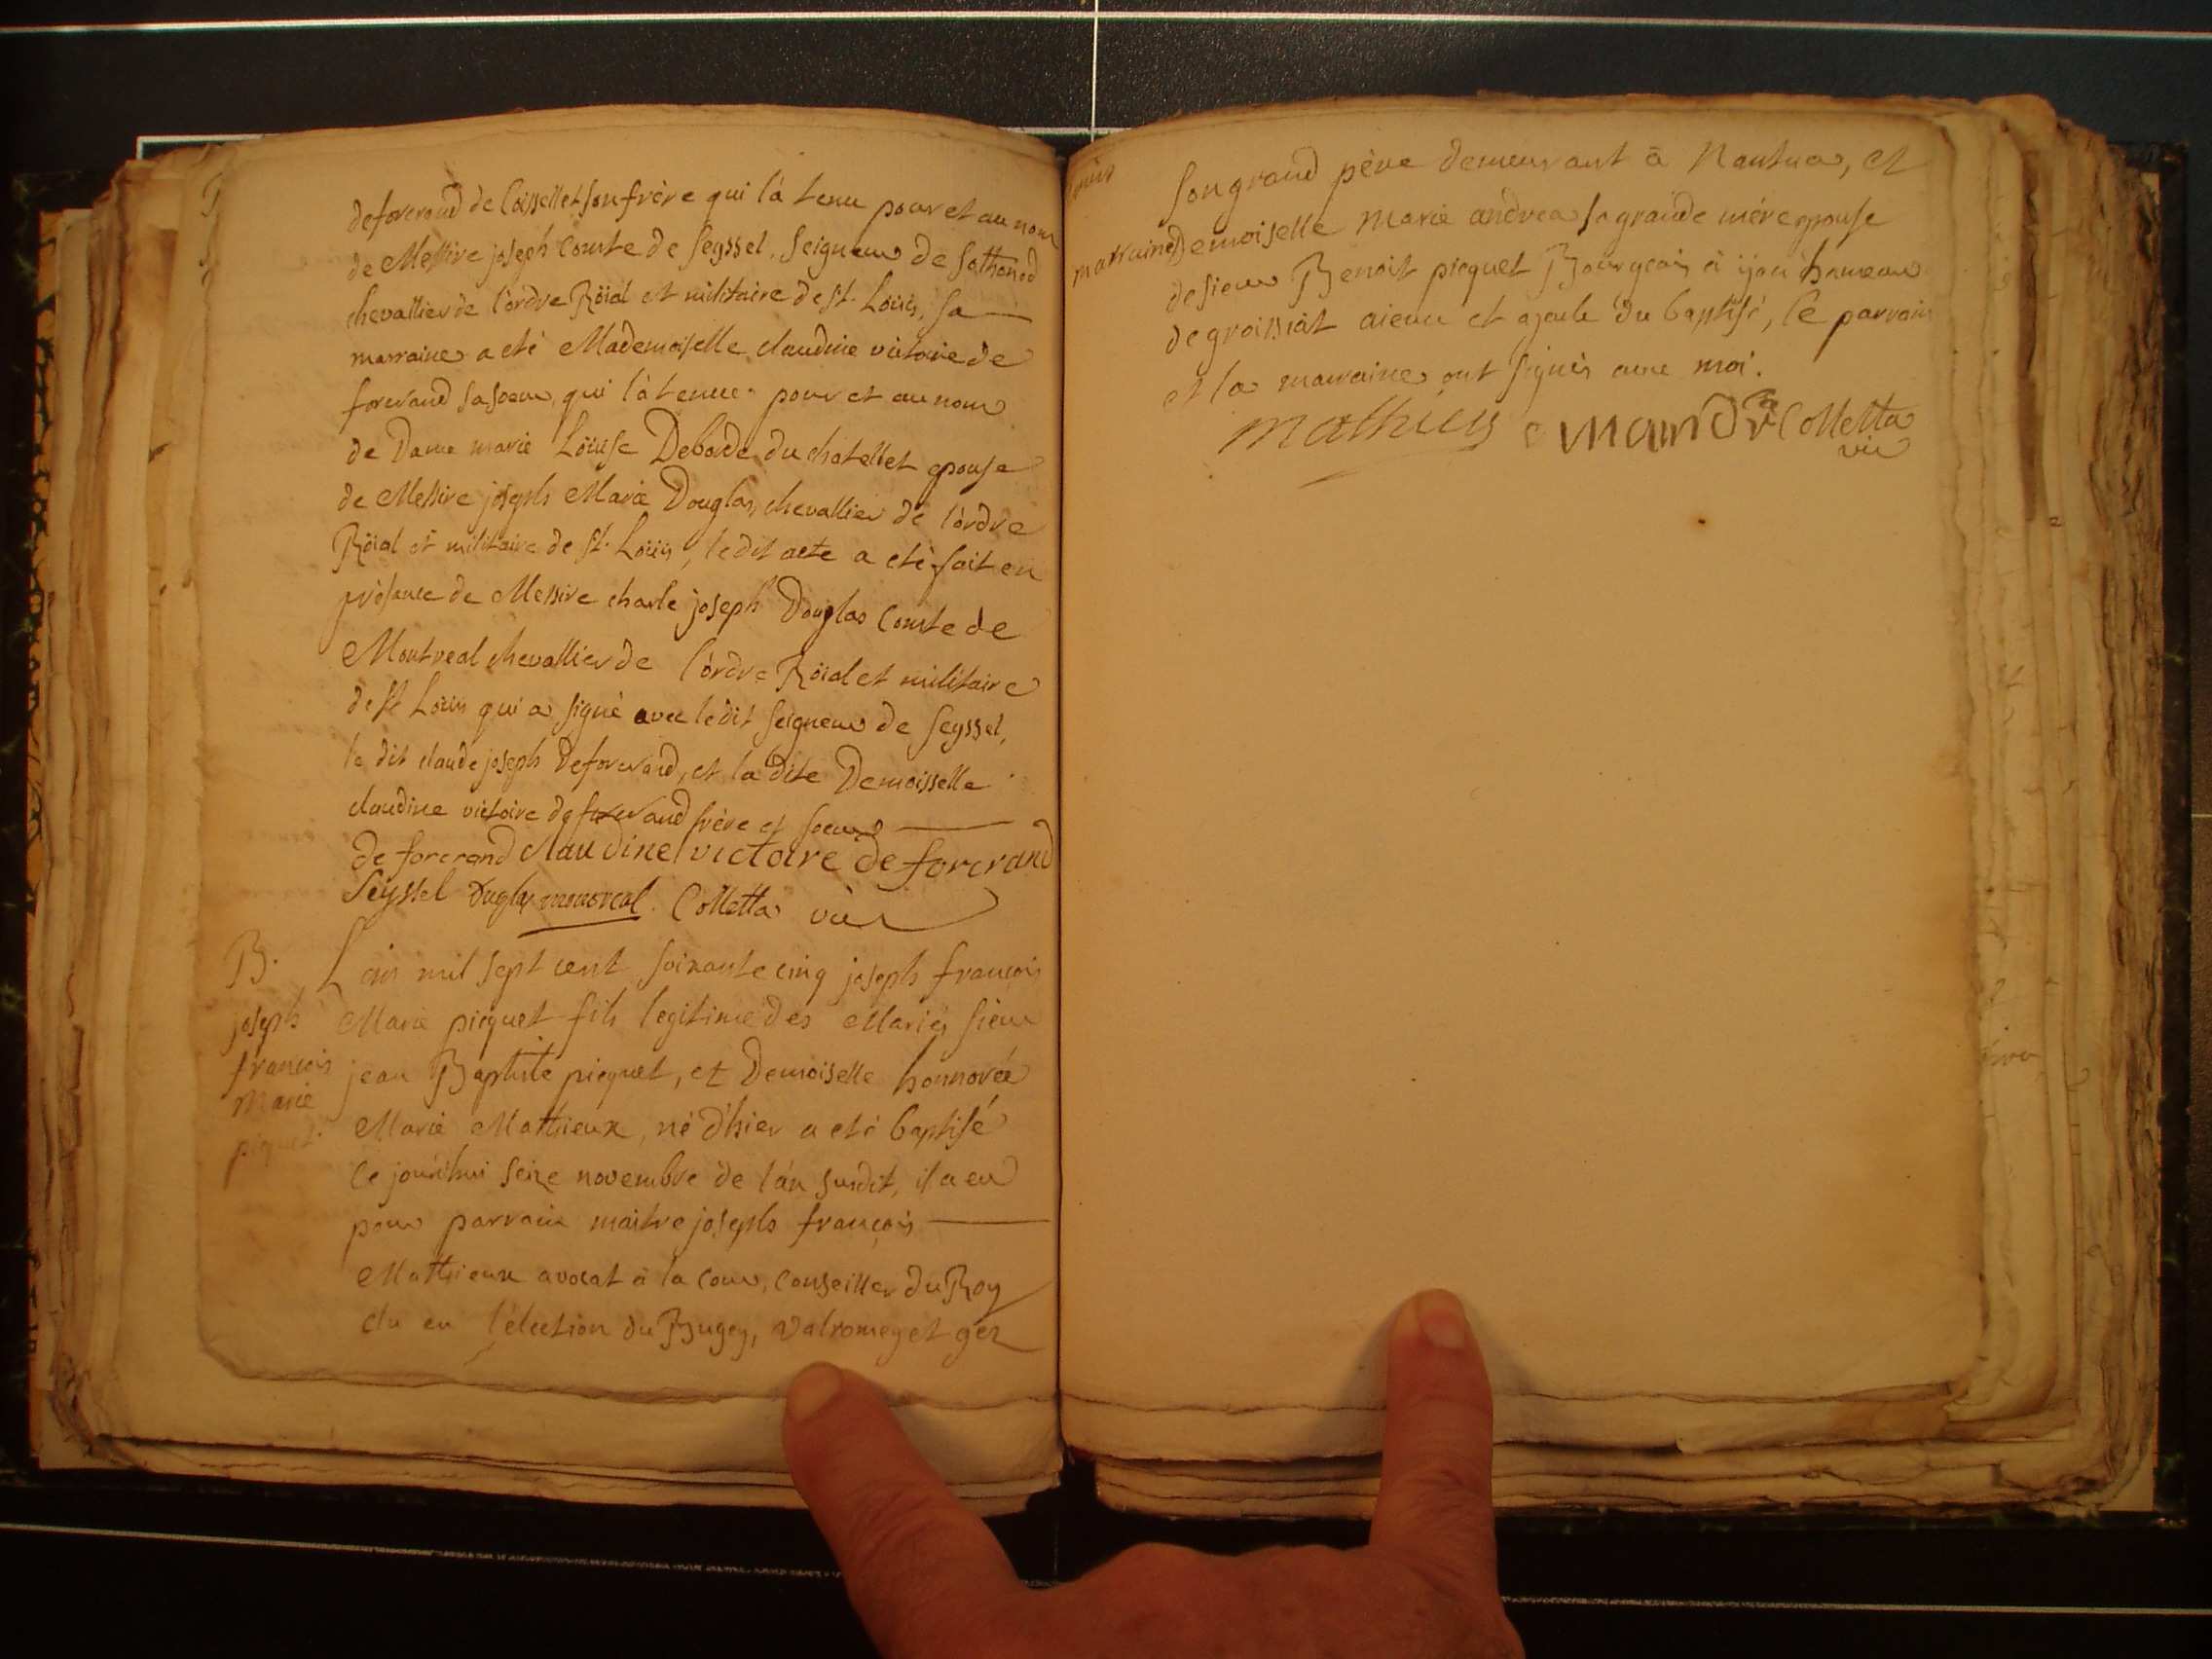 deforcrand de Coissellet son frère qui l'à tenu pour et au nom
de Messire joseph Comte de Seyssel, Seigneur de Sothonod
chevallier de l'ordre Röial et militaire de St. Loüis, sa
marraine a eté Mademoiselle claudine victoire de
forcrand sa soeur, qui l'à tenue pour et au nom
de Dame marie Loüise Deborde du chatellet epouse
de Messire joseph Marie Douglas, chevallier de l'ordre
Röial et militaire de St. Loüis, le dit acte a eté fait en
présance de Messire charle joseph Douglas Comte de
Montreal chevallier de l'ordre Röial et militaire
de St Loüis qui a signé avec le dit Seigneur de Seyssel,
le dit claude joseph Deforcrand, et la dite Demoisselle
claudine victoire de forcrand frère et soeur
de forcrand claudine victoire de forcrand
Seyssel Duglas montreal. Colletta vic
B.
joseph
françois
Marie
piquet.
L'an mil sept cent soixante cinq joseph françois
Marie picquet fils legitime des Mariés sieur
jean Baptiste picquet, et Demoiselle honnorée
Marie Mathieux, né d'hier a eté baptisé
ce jourdhui seize novembre de l'an susdit, il a eu
pour parrain maitre joseph françois
Mathieux avocat à la Cour, Conseiller du Roy
elu en l'élection du Bugey, valromey et gex
son grand père demeurant à Nantua, et
marraine Demoiselle Marie andrea sa grande mère epouse
de sieur Benoit picquet Bourgeois à ijon hameau
de groissiat aieux et ajeule du baptisé, le parrain
et la marraine ont signés avec moi.
mathieux Colletta
vic